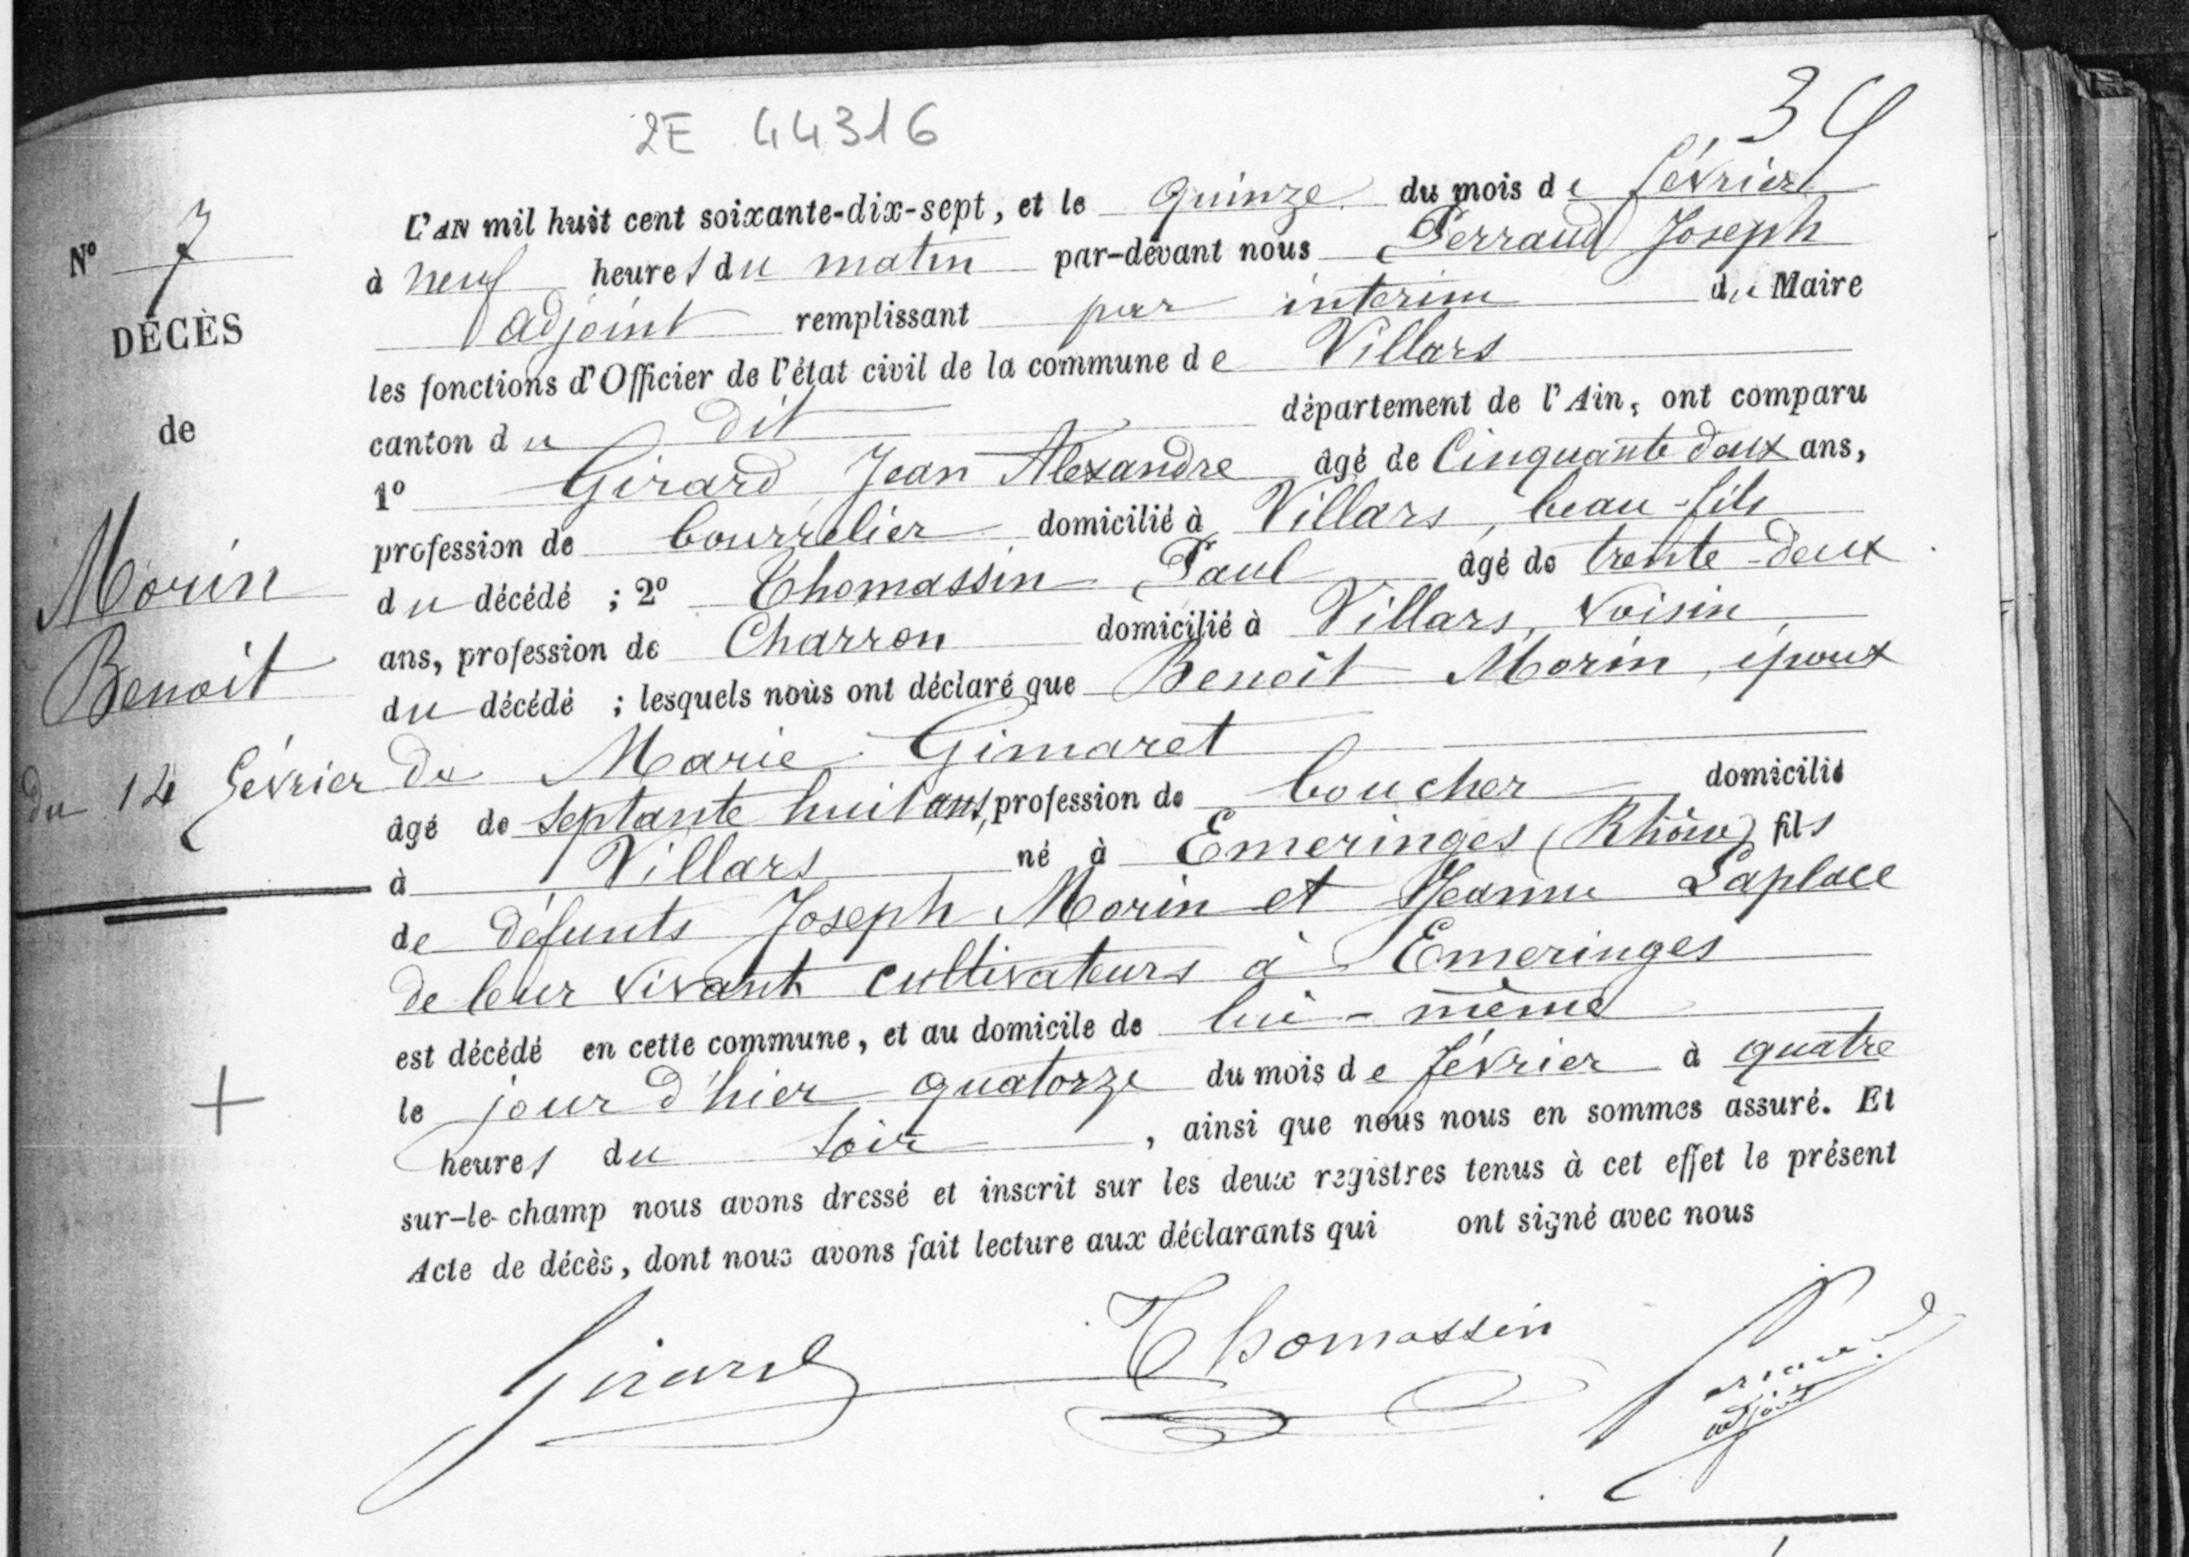 2E 44316
39
L'AN mil huit cent soixante-dix-sept, et le quinze du mois de février
à neuf heures du matin par-devant nous Perraud Joseph
adjoint remplissant par interim du Maire
les fonctions d'Officier de l'état civil de la commune de Villars
canton du dit département de l'Ain, ont comparu
1º Girard Jean Alexandre âgé de Cinquante deux ans,
profession de bourrelier domicilié à Villars, beau-fils
du décédé ; 2º Thomassin Paul âgé de trente-deux
ans, profession de Charron domicilié à Villars, voisin
du décédé ; lesquels nous ont déclaré que Benoit Morin, époux
de Marie Gimaret
âgé de septante huit ans, profession de boucher domicilié
à Villars né à Emeringes (Rhône) fils
de défunts Joseph Morin et Jeanne Laplace
de leur vivant cultivateurs à Emeringes
est décédé en cette commune, et au domicile de lui-même
le jour d'hier quatorze du mois de février à quatre
heures du soir, ainsi que nous nous en sommes assuré. Et
sur-le-champ nous avons dressé et inscrit sur les deux registres tenus à cet effet le présent
Acte de décès, dont nous avons fait lecture aux déclarants qui ont signé avec nous
Nº 7
DÉCÈS
de
Morin
Benoit
du 14 février
Girard Thomassin
adjoint